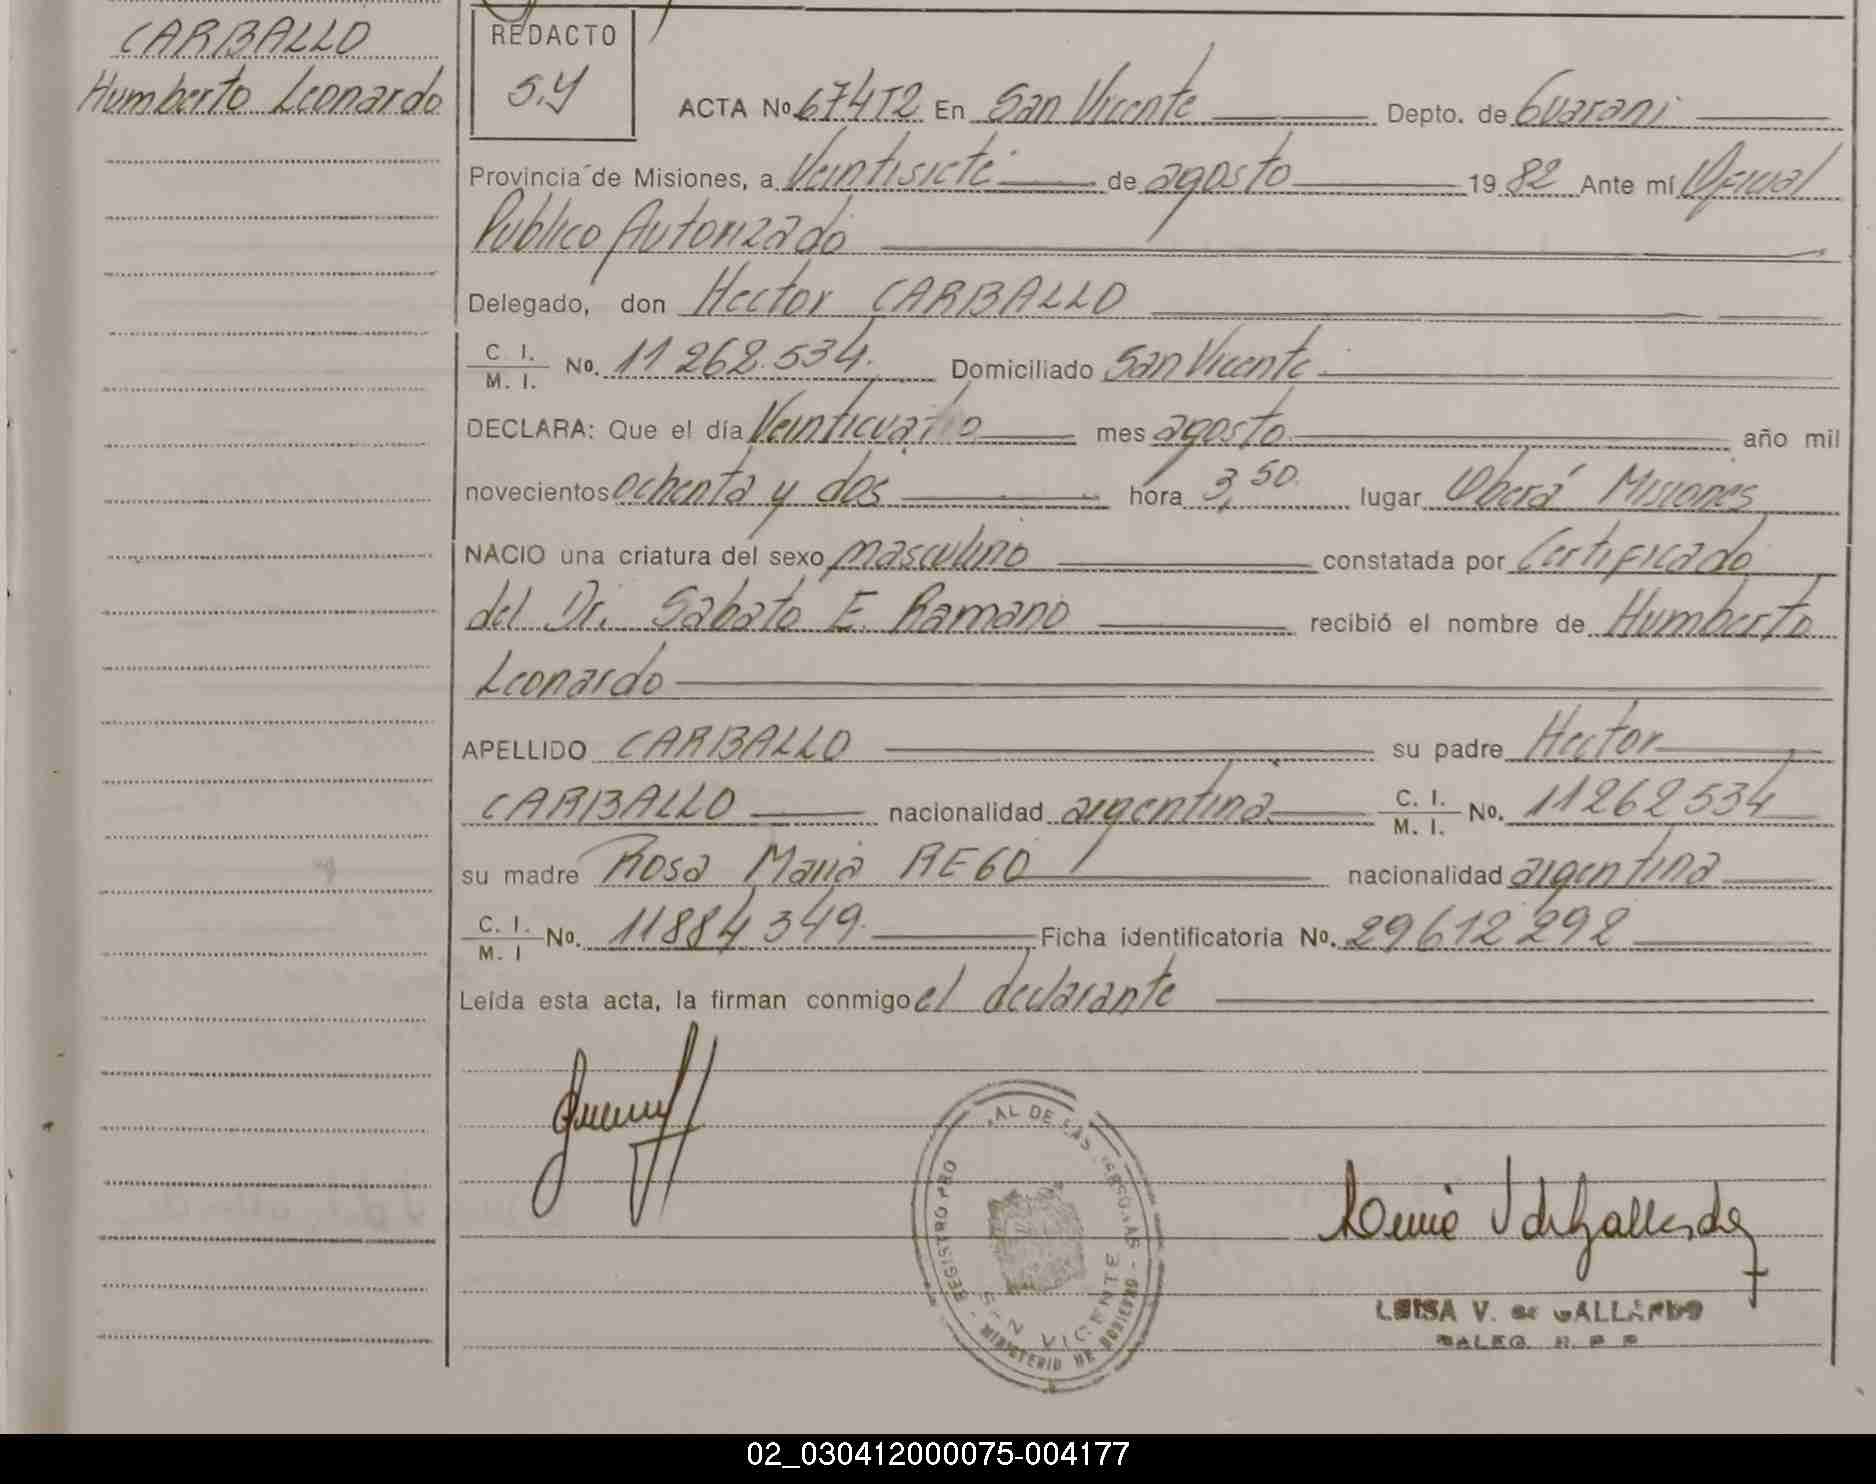 CARBALLO
Humberto Leonardo
REDACTO
S.Y
ACTA No. 674T2 En San Vicente Depto. de Guarani
Provincia de Misiones, a Veintisiete de agosto 1982 Ante mí Oficial
Publico Autorizado
Delegado, don Hector CARBALLO
C. I.
M. I. No. 11 262.534. Domiciliado San Vicente
DECLARA: Que el día Veinticuatro mes agosto año mil
novecientos ochenta y dos hora 3,50 lugar Oberá Misiones
NACIO una criatura del sexo masculino constatada por Certificado
del Dr. Sabato E. Ramano recibió el nombre de Humberto
Leonardo
APELLIDO CARBALLO su padre Hector
CARBALLO nacionalidad argentina C. I.
M. I. No. 11262534
su madre Rosa Maria REGO nacionalidad argentina
C. I.
M. I No. 11884349. Ficha identificatoria No. 29612292
Leída esta acta, la firman conmigo el declarante
REGISTRO PRO AL DE LAS PERSONAS
SAN VICENTE
MINISTERIO DE GOBIERNO
LUISA V. de GALLARDO
02_030412000075-004177